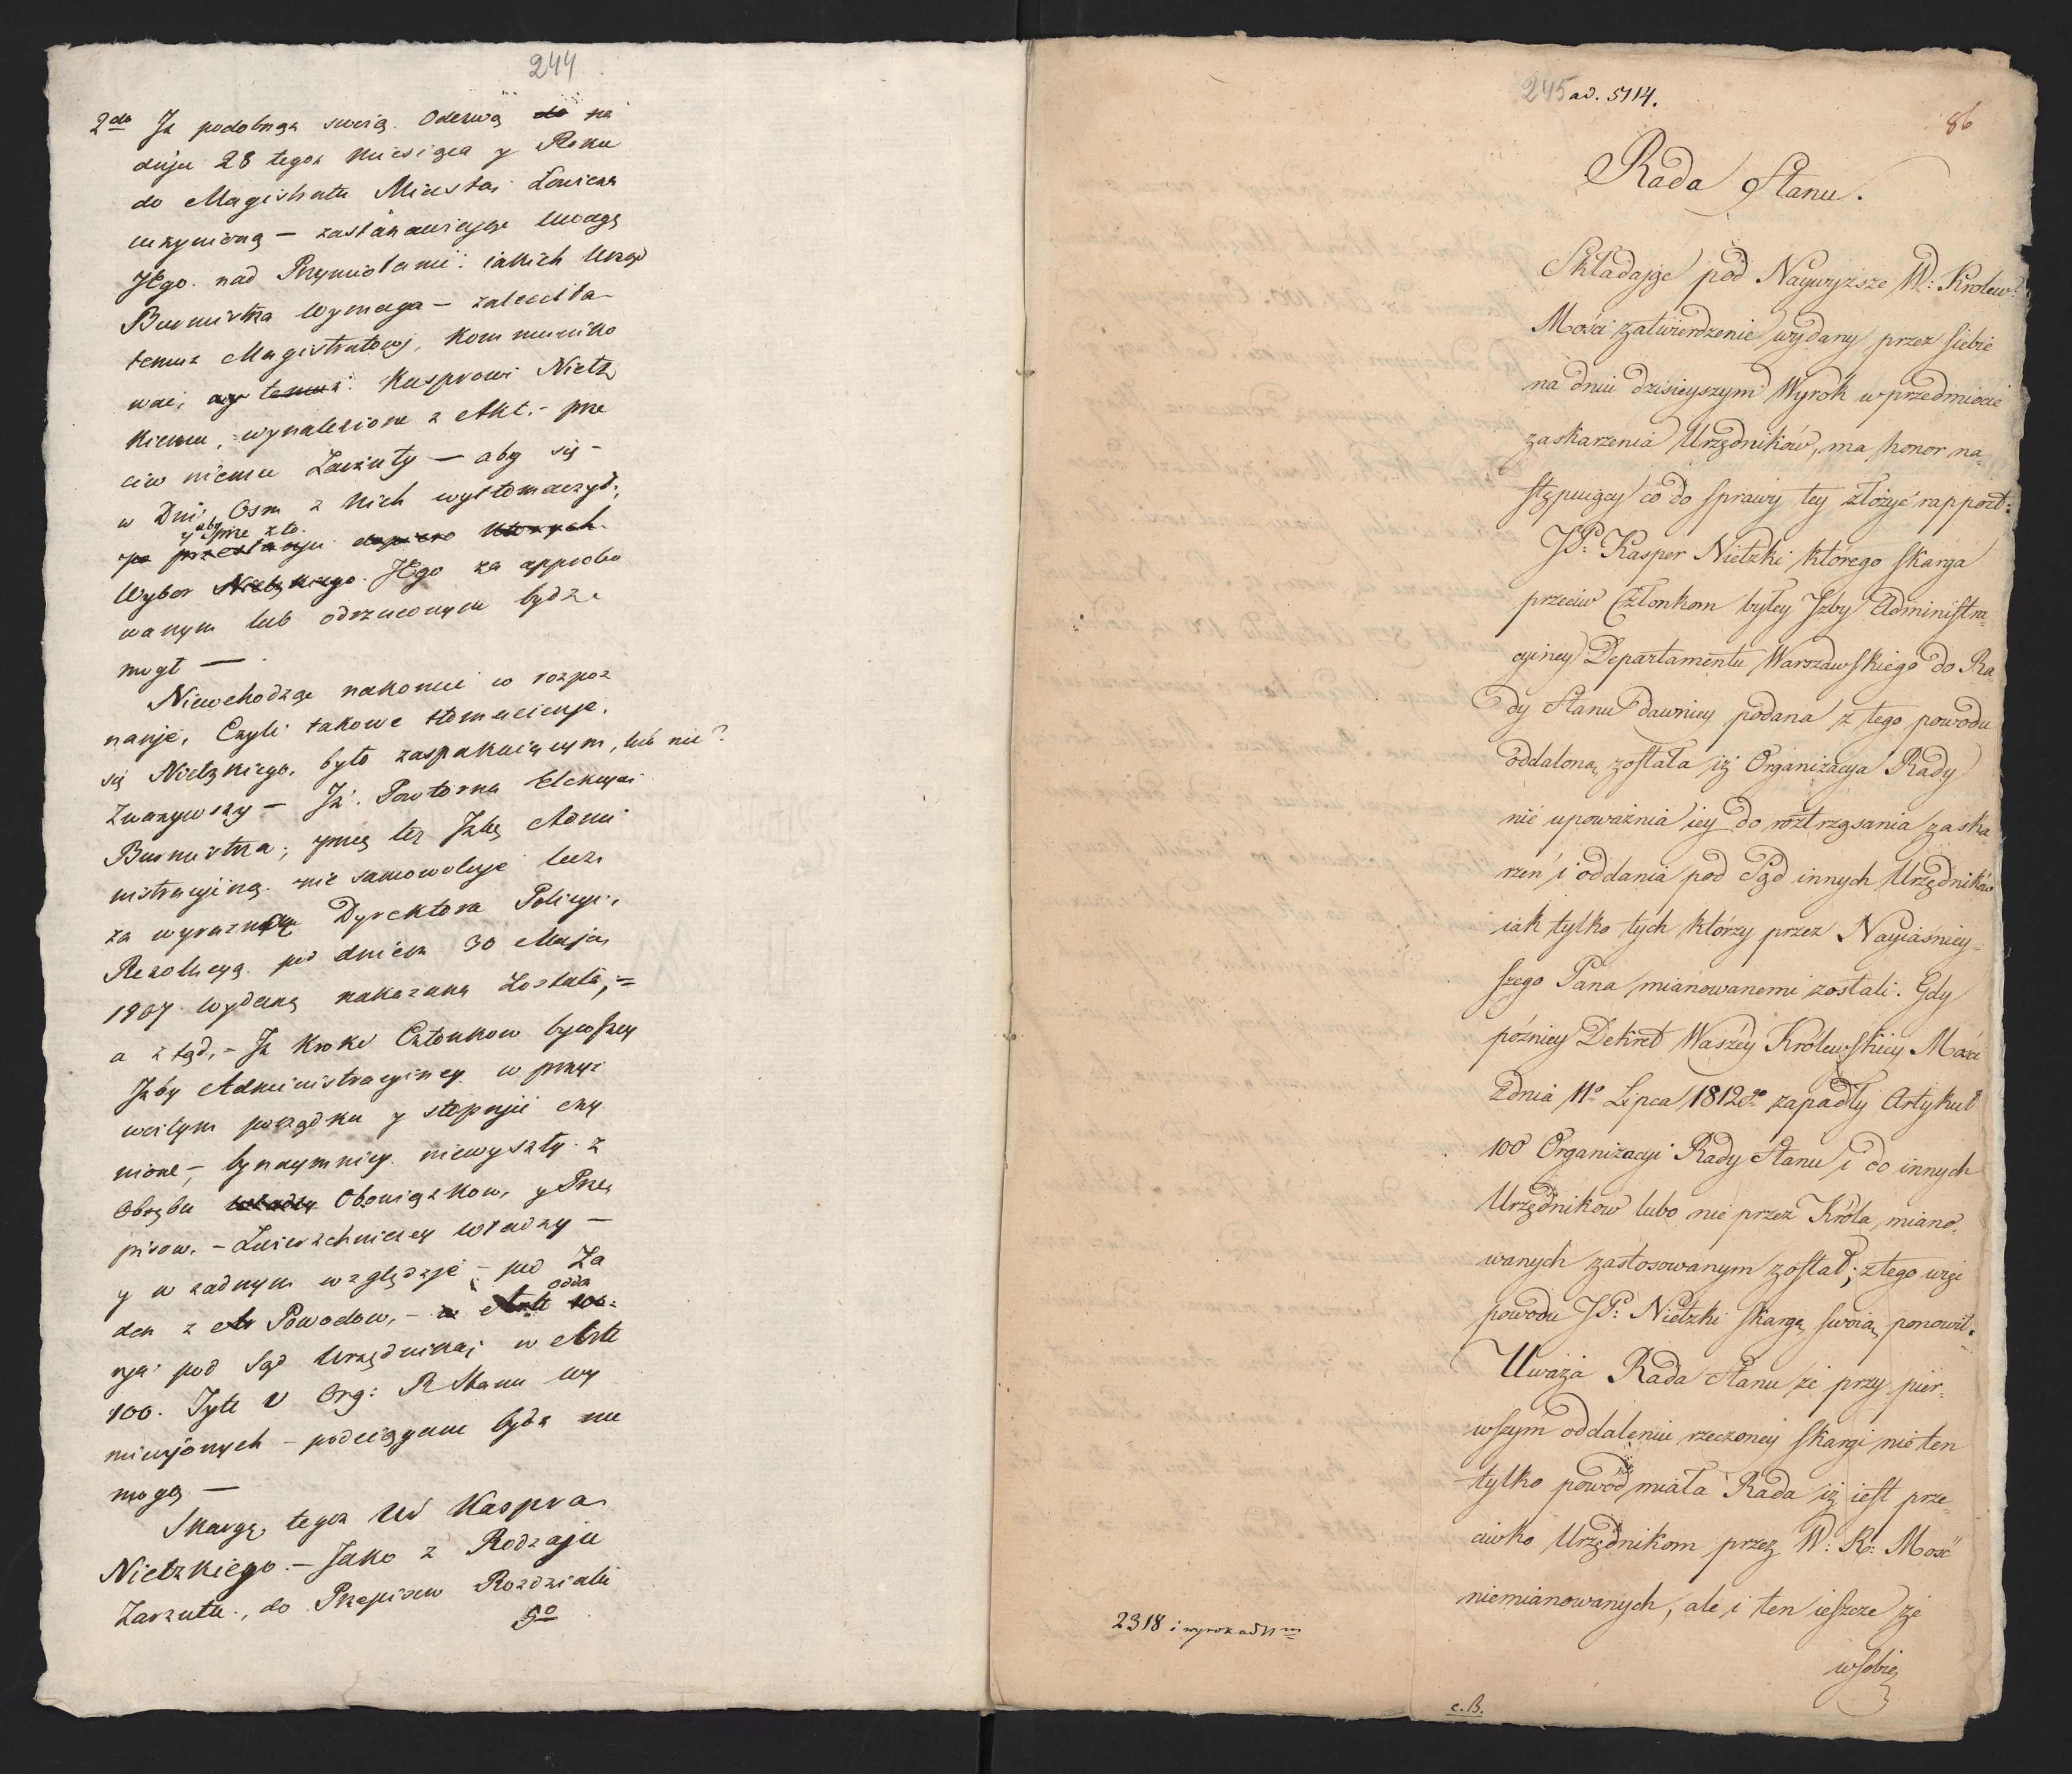 244
2do Iż podobnąż swoią Odezwą do na
dniu 28 tegoż Miesiąca y Roku
do Magistratu Miasta Łowicza
uczynioną — zastanawiaiąc uwagę
JEgo nad Przymiotami iakich Urząd
Burmistrza wymaga — zaleciła
temuż Magistratowi, kommuniko
wać, temuż Kasprowi Nietz
kiemu, wynalezione z Akt. — prze
ciw niemu Zarzuty — aby się —
w Dni Osm z Nich wytłomaczył,
y aby prze z to
po przestaniu dopiero których
Wybor Nietzkiego JEgo za approbo
wanym lub odrzuconym bydz
mogł —
Niewchodząc nakoniec w rozpoz
nanie, Czyli takowe tłomaczenie
się Nietzkiego, było zaspakaiaiącym, lub nie?
Zważywszy — Iż Powtorna Elekcya
Burmistrza, przez tęż Izbę Admi
nistracyiną nie samowolnie lecz
za wyrazną Dyrektora Policyi,
Rezolucyą pod dniem 30 Maja
1807 wydaną nakazana Została, =
a ztąd, — Iż Kroki Członkow bywszey
Izby Administracyiney w przyz
woitym porządku y stopniu czy
nione, — bynaymniey niewyszły z
Obrębu władzy Obowiązkow, y Prze
pisow, — Zwierzchniczey władzy —
y w żadnym względzie — pod Ża
den z Powodow, — w Arte 100 odda
nia pod Sąd Urzędnika, w Arte
100. Tytt V Org: R Stanu wy
mienionych — podciągane bydz nie
mogą —
Skargę, tegoż Ur Kaspra
Nietzkiego — Jako z Rodzaju
Zarzutu, do Przepisow Rozdziału
5o
245 ad. 5114.
86
Rada Stanu.
Składając pod Naywyższe W: Krolew:
Mości zatwierdzenie wydany przez siebie
na dniu dzisieyszym Wyrok w przedmiocie
zaskarzenia Urzędników, ma honor na-
stępuiący co do sprawy tey złożyć rapport:
JP: Kasper Nietzki którego skarga
przeciw Członkom byłey Izby Administra-
cyiney Departamentu Warszawskiego do Ra-
dy Stanu dawniey podana z tego powodu
oddaloną została iż Organizacya Rady
nie upoważnia iey do roztrząsania zaska-
rzeń i oddania pod Sąd innych Urzędników
iak tylko tych którzy przez Nayiaśniey-
szego Pana mianowanemi zostali. Gdy
późniey Dekret Waszéy Królewskiey Mości
z dnia 11o Lipca 1812go zapadły Artykuł
100 Organizacyi Rady Stanu i do innych
Urzędników lubo nie przez Króla miano-
wanych zastosowanym został; z tego więc
powodu JP: Nietzki skargę swoią ponowił.
Uważa Rada Stanu że przy pier-
wszym oddaleniu rzeczoney skargi nie ten
tylko powód miała Rada iż iest prze-
ciwko Urzędnikom przez W: K: Mość
niemianowanych, ale i ten ieszcze że
w sobie
2318 i wyrok ad 11m
c.B.